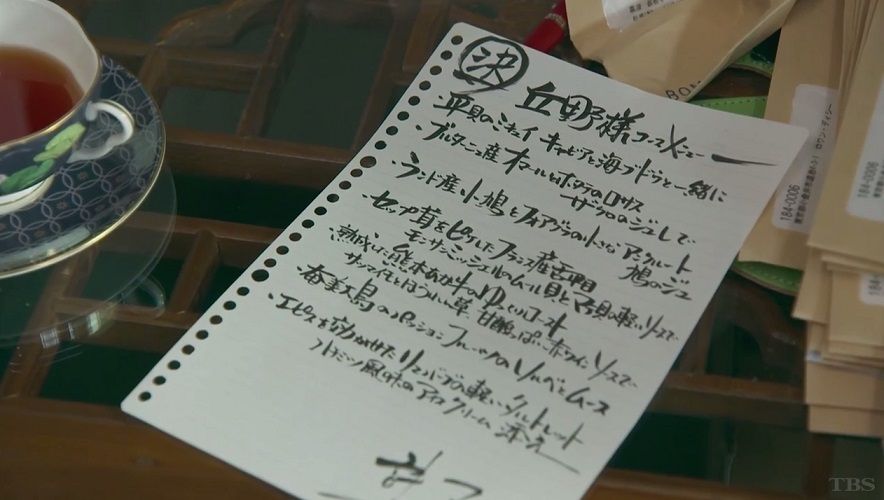 決
丘野様コースメニュー
・平貝のミキュイ キャビアと海ブドウと一緒に
・ブルターニュ産オマールとホタテのロザス
ザクロのジュレで
・ランド産小鳩とフォアグラの小さなアンクルート
鳩のジュ
・セップ茸をピケした フランス産舌平目
モンサンミッシェルのムール貝とマテ貝の軽いソースで
・熟成した熊本あか牛のゆっくりロースト
サツマイモとほうれん草 甘酸っぱい赤ワインソースで
・奄美大島のパッションフルーツのソルベとムース
・エピスを効かせたリュバーブの軽いタルトレット
ハチミツ風味のアイスクリーム添え
BO
184-0006
184-0006
184
TBS